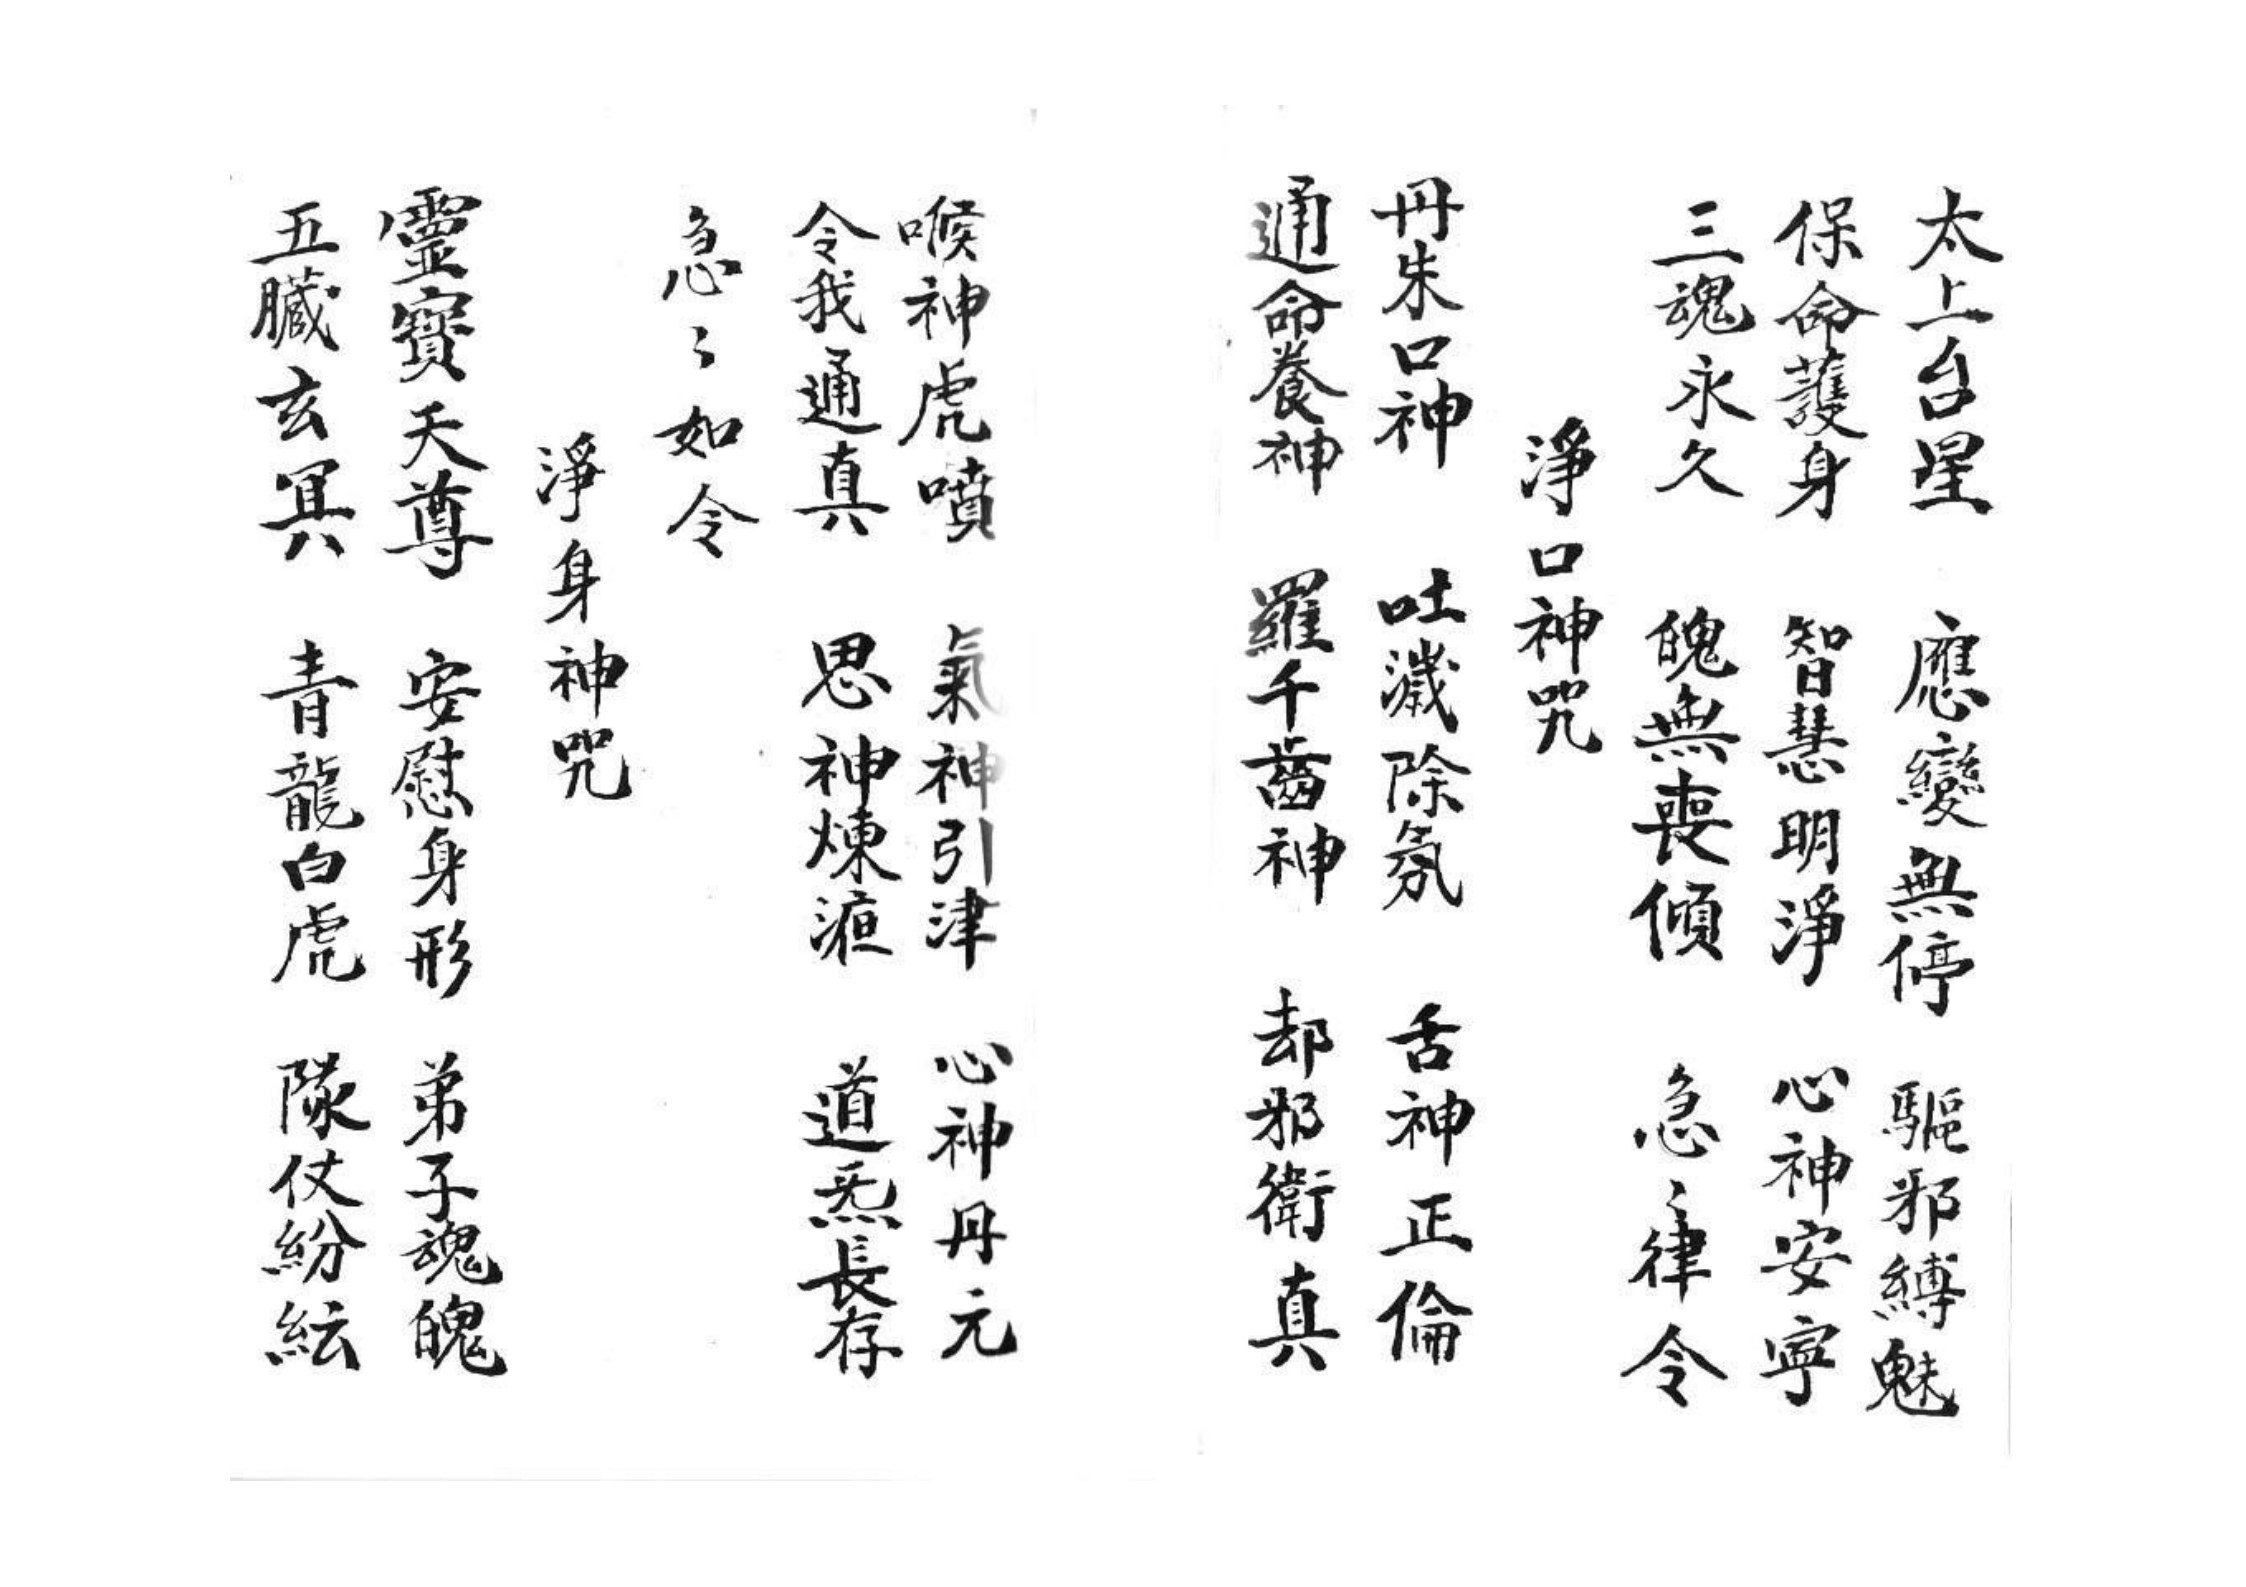 太上台星　應變無停　驅邪縛魅
保命護身　智慧明淨　心神安寧
三魂永久　魄無喪傾　急〻律令
淨口神咒
丹朱口神　吐濊除氛　舌神正倫
通命養神　羅千齒神　却邪衛真
喉神虎噴　氣神引津　心神丹元
令我通真　思神煉液　道炁長存
急〻如令
淨身神咒
靈寶天尊　安慰身形　弟子魂魄
五臟玄冥　青龍白虎　隊仗紛紜